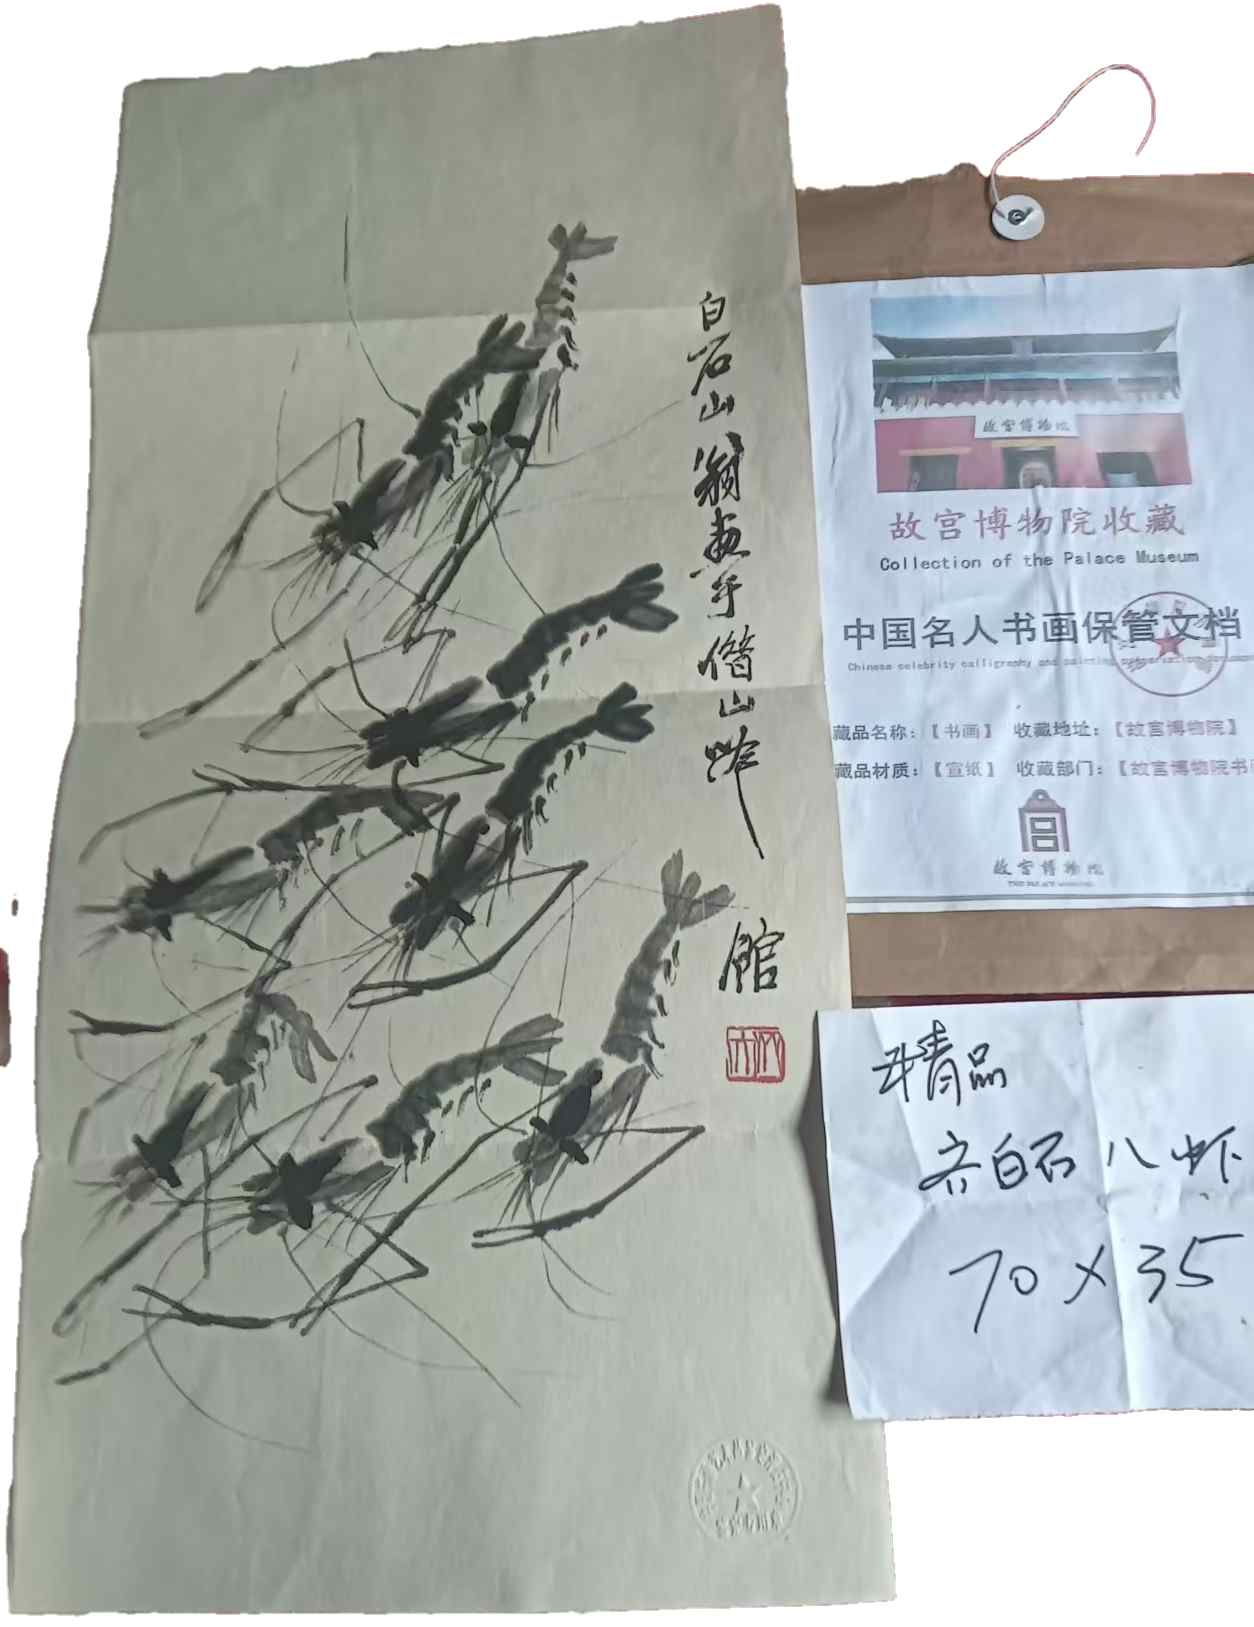 白石山翁画于借山吟
館
故宫博物院
故宫博物院收藏
Collection of the Palace Museum
中国名人书画保管文档
Chinese celebrity calligraphy and painting
藏品名称：【书画】 收藏地址：【故宫博物院】
藏品材质：【宣纸】 收藏部门：【故宫博物院书
故宫博物院
THE PALACE MUSEUM
精品
齐白石八虾
70×35